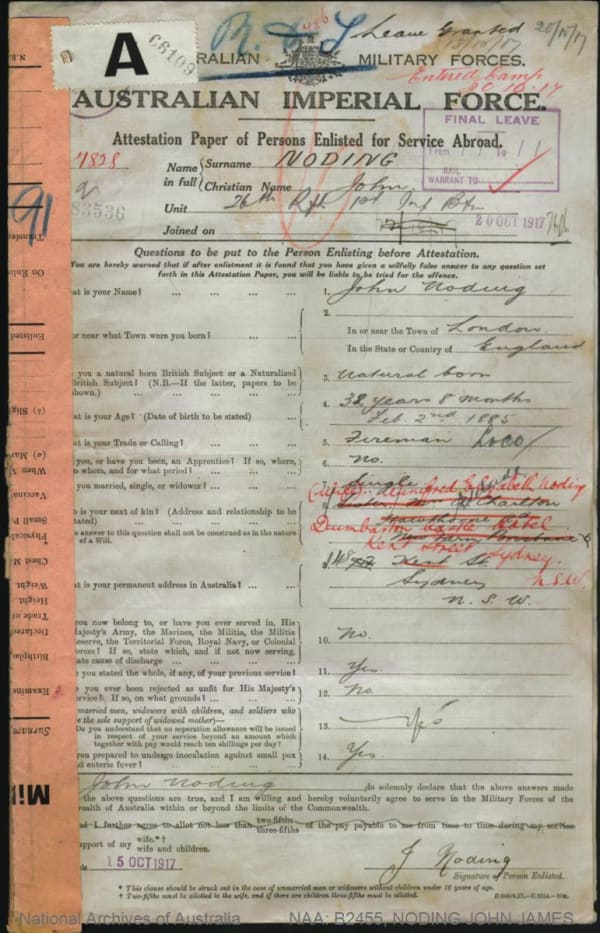 A
66109
R. & L
Leave Granted
18/10/17
20/10/17
RALIAN MILITARY FORCES.
Entered Camp
20-10-17
AUSTRALIAN IMPERIAL FORCE.
FINAL LEAVE
From
RAIL
WARRANT TO
Attestation Paper of Persons Enlisted for Service Abroad.
7828
Name in full { Surname NODING
Christian Name John
83536
91
Unit 26th Rfts 1st Inf Btn
Joined on 20 OCT 1917
Questions to be put to the Person Enlisting before Attestation.
You are hereby warned that if after enlistment it is found that you have given a wilfully false answer to any question set
forth in this Attestation Paper, you will be liable to be tried for the offence.
at is your Name? ... ... ... ... 1. John Noding
or near what Town were you born? ... ... 2. In or near the Town of London
In the State or Country of England
you a natural born British Subject or a Naturalized
British Subject? (N.B.—If the latter, papers to be
shown.) ... ... ... ... 3. Natural born
at is your Age? (Date of birth to be stated) ... 4. 32 years 8 months
Feb. 2nd 1885
at is your Trade or Calling? ... ... ... 5. Fireman Loco
you, or have you been, an Apprentice? If so, where,
to whom, and for what period? ... ... ... 6. No.
you married, single, or widower? ... ... Single
(Wife) Winifred Elizabeth Noding
is your next of kin? (Address and relationship to be
stated) ... ... ... Charlton
Dumbarton Castle Hotel
answer to this question shall not be construed as in the nature
of a Will.
Kent Street Sydney.
N.S.W.
at is your permanent address in Australia? ... ... Kent St.
Sydney
N. S. W.
you now belong to, or have you ever served in, His
Majesty's Army, the Marines, the Militia, the Militia
Reserve, the Territorial Force, Royal Navy, or Colonial
Forces? If so, state which, and if not now serving,
state cause of discharge ... ... ... 10. No.
you stated the whole, if any, of your previous service? 11. Yes.
you ever been rejected as unfit for His Majesty's
Service? If so, on what grounds? ... ... 12. No
married men, widowers with children, and soldiers who
are the sole support of widowed mother)—
Do you understand that no separation allowance will be issued
in respect of your service beyond an amount which
together with pay would reach ten shillings per day? 13. Yes
you prepared to undergo inoculation against small pox
and enteric fever? ... ... ... 14. Yes.
John Noding do solemnly declare that the above answers made
the above questions are true, and I am willing and hereby voluntarily agree to serve in the Military Forces of the
wealth of Australia within or beyond the limits of the Commonwealth.
and I further agree to allot not less than two-fifths three-fifths of the pay payable to me from time to time during my service
support of my wife.*†
wife and children.
15 OCT 1917
J Noding
Signature of Person Enlisted.
* This clause should be struck out in the case of unmarried men or widowers without children under 16 years of age.
† Two-fifths must be allotted to the wife, and if there are children three-fifths must be allotted.
N.B.
Transfer
On Enli
Enlisted
(b) Slig
(a) Mar
When
Vaccina
Small P
Physical
Chest M
Weight.
Height.
Trade of
Declared
Birthplac
Examine
Surnam
Mili
National Archives of Australia NAA: B2455, NODING JOHN JAMES